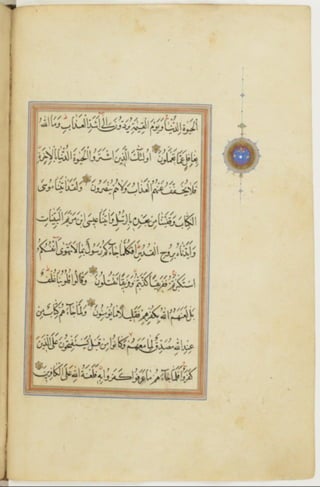 الحيوة الدنيا ويوم القيمة يردون الى اشد العذاب وما الله
بغافل عما تعملون اولئك الذين اشتروا الحيوة الدنيا بالاخرة
فلا يخفف عنهم العذاب ولا هم ينصرون ولقد اتينا موسى
الكتاب وقفينا من بعده بالرسل واتينا عيسى ابن مريم البينات
وايدناه بروح القدس افكلما جاءكم رسول بما لا تهوى انفسكم
استكبرتم ففريقا كذبتم وفريقا تقتلون وقالوا قلوبنا غلف
بل لعنهم الله بكفرهم فقليلا ما يؤمنون ولما جاءهم كتاب من
عند الله مصدق لما معهم وكانوا من قبل يستفتحون على الذين
كفروا فلما جاءهم ما عرفوا كفروا به فلعنة الله على الكافرين